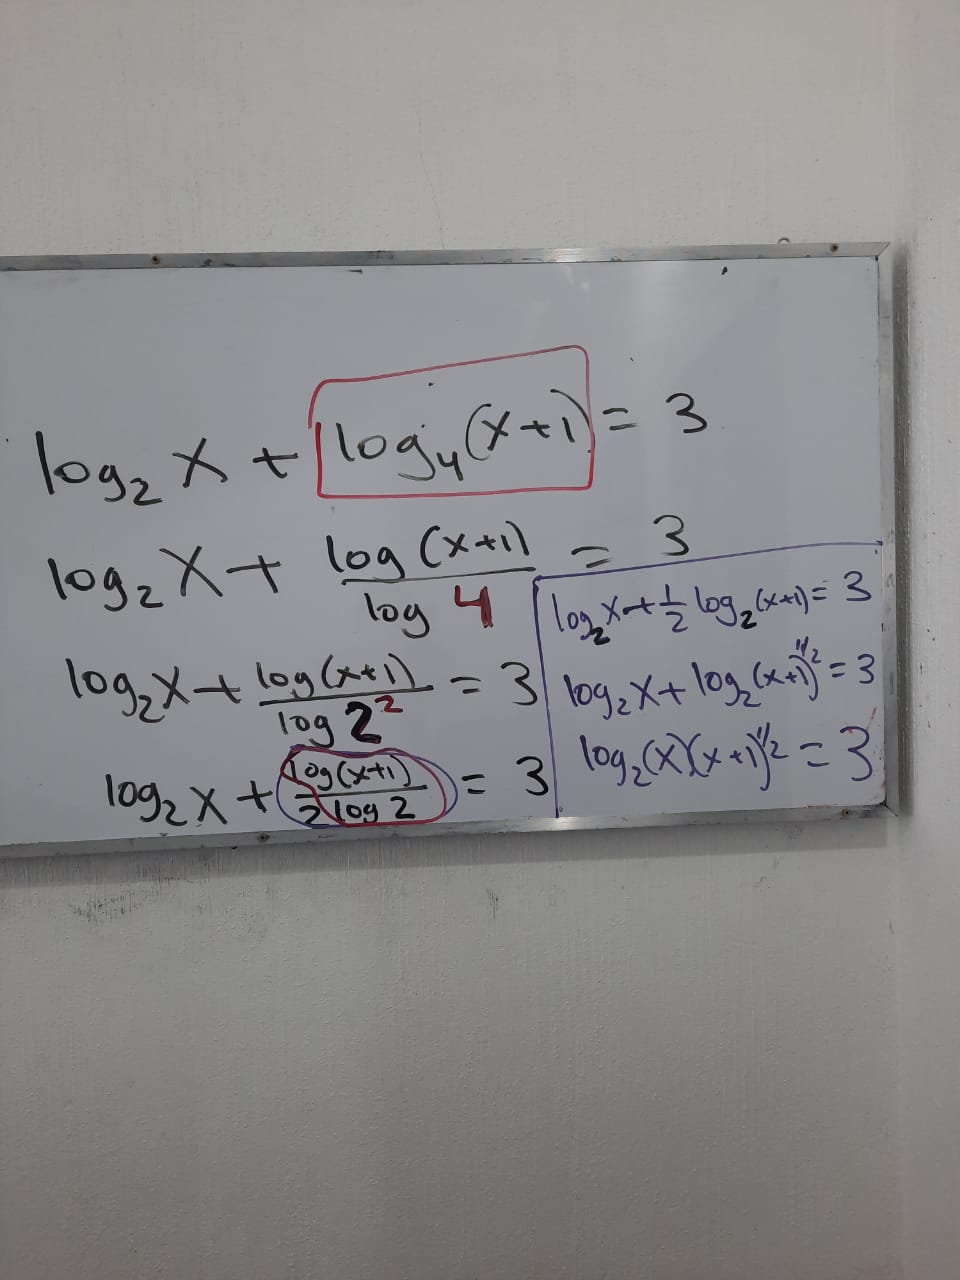 log₂ x + log₄(x+1) = 3
log₂ x + log (x+1) / log 4 = 3
log₂ x + log(x+1) / log 2² = 3
log₂ x + log(x+1) / 2 log 2 = 3
log₂ x + 1/2 log₂(x+1) = 3
log₂ x + log₂(x+1)^1/2 = 3
log₂(x)(x+1)^1/2 = 3